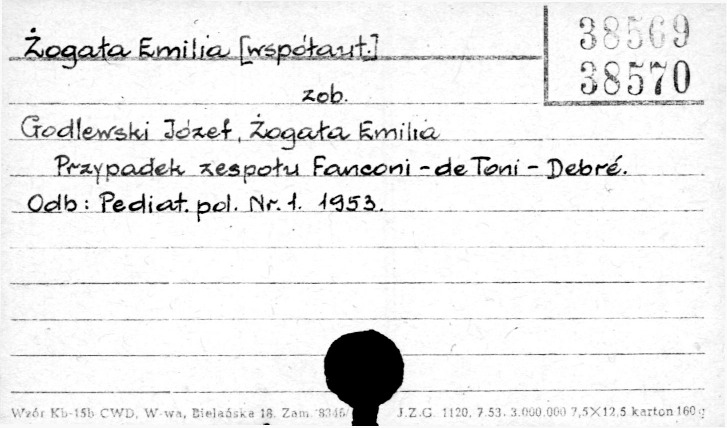 Żogała Emilia [współaut.]
38569
38570
zob.
Godlewski Józef, Żogała Emilia
Przypadek zespołu Fanconi - de Toni - Debré.
Odb: Pediat. pol. Nr. 1. 1953.
Wzór Kb-15b CWD, W-wa, Bielańska 18. Zam. 8346/ J.Z.G. 1120. 7.53. 3.000.000 7,5×12,5 karton 160 g